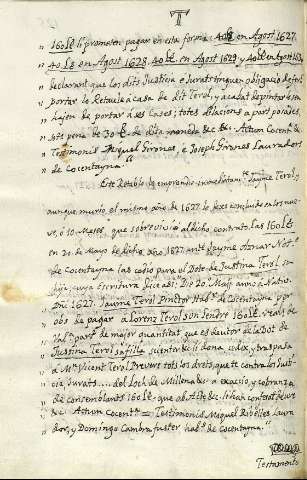 T
" 160 ₤ li prometen pagar en esta forma: 40 ₤ en Agost 1627.
" 40 ₤ en Agost 1628. 40 ₤ en Agost 1629 y 40 ₤ en Agost 1630
" declarant que los dits Justicia e Jurats tinguen obligacio de fer
" portar lo Retaule a casa de dit Terol, y acabat de pintar lo
" hajen de portar a ses Cases; totes dilacions a part posades,
" sots pena de 30 ₤ de dita moneda &c. &c. Actum Cocent.ª
" Testimonis Miquel Girones, e Joseph Girones Lauradors
" de Cocentayna"
Este Retablo le emprendio inmediatam.te Jayme Terol, y
aunque murio el mismo año de 1627. lo dexò concluido en los nue-
ve, ò 10 Meses, que sobrevivió al dicho contrato. Las 160 ₤
en 20 de Mayo de dicho año 1627. ante Jayme Aznar Not.º
de Cocentayna las cediò para el Dote de Justina Terol su
hija, cuya Escritura dice asi: Die 20. Maij anno a Nativ.
Dni 1627. Jayme Terol Pintor Hab.r de Cocentayna per
" obs de pagar à Lorens Terol son Gendre 160 ₤ Reals de
" Val.ª part de major quantitat que es deutor de la Dot de
" Justina Terol sa filla, sijenter de li dona cedix, y traspasa
" à M.n Vicent Terol Prevere tots los drets que te contra los Just-
" cia, Jurats .... del Loch de Millena &c. a exacio, y cobranza
" de consemblants 160 ₤. que ab Acte &c. li han confesat deure
" &c. Actum Cocent.ª = Testimonis Miquel Ribelles Laura
" dor, y Domingo Cambra fuster hab.rs de Cocentayna."
Testamento